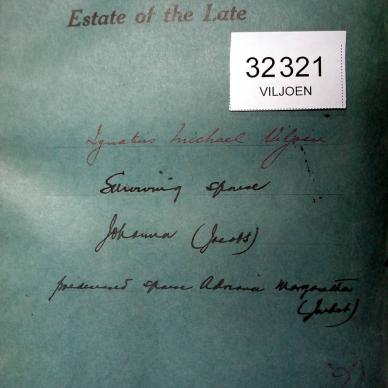 Estate of the Late
32321
VILJOEN
Ignatius Michael Viljoen
Surviving spouse
Johanna (Jacobs)
predeceased spouse Adriana Margaretha